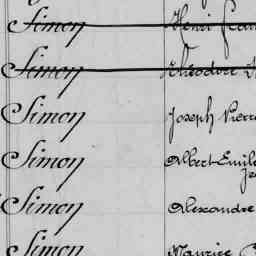 Simon Henri
Simon Théodore
Simon Joseph Pierre
Simon Albert-Emile
Simon Alexandre
Simon Maurice